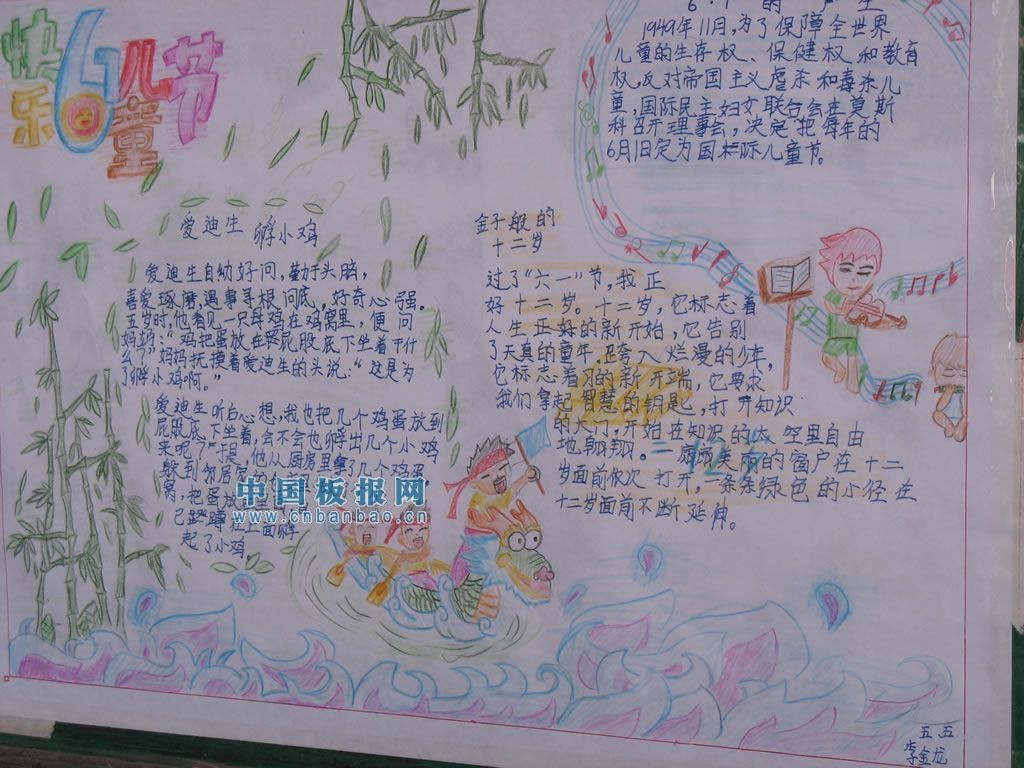 快乐6.1儿童节
6·1的产生
1949年11月,为了保障全世界
儿童的生存权、保健权和教育
权,反对帝国主义虐杀和毒杀儿
童,国际民主妇女联合会在莫斯
科召开理事会,决定把每年的
6月1日定为国际儿童节。
爱迪生
孵小鸡
爱迪生自幼好问,勤于头脑,
喜爱琢磨,遇事寻根问底,好奇心强。
五岁时,他看见一只母鸡在鸡窝里,便问
妈妈:“鸡把蛋放在屁股底下坐着干什
么?”妈妈抚摸着爱迪生的头说:“这是为
了孵小鸡啊。”
爱迪生听后心想,我也把几个鸡蛋放到
屁股底下坐着,会不会也孵出几个小鸡
来呢?于是,他从厨房里拿了几个鸡蛋,
躲到邻居
窝,把蛋放
己蹲 上面孵
起了小鸡。
金子般的
十二岁
过了“六一”节,我正
好十二岁。十二岁,它标志着
人生正好的新开始,它告别
了天真的童年,跨入烂漫的少年,
它标志着 的新开端,它要求
我们拿起智慧的钥匙,打开知识
的大门,开始在知识的太空里自由
地翱翔。一扇扇美丽的窗户在十二
岁面前依次打开,一条条绿色的小径在
十二岁面前不断延伸。
中国板报网
www.cnbanbao.cn
五五
李金龙